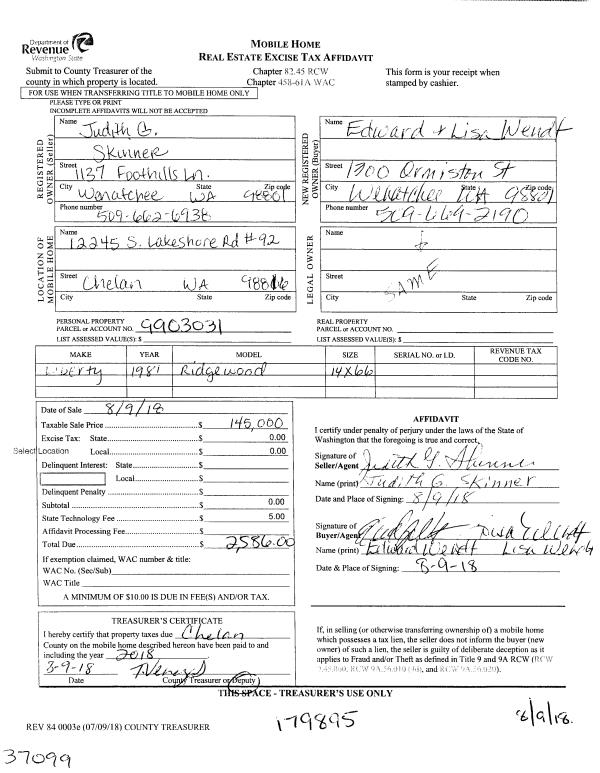 Department of
Revenue
Washington State
MOBILE HOME
REAL ESTATE EXCISE TAX AFFIDAVIT
Submit to County Treasurer of the
county in which property is located.
Chapter 82.45 RCW
Chapter 458-61A WAC
This form is your receipt when
stamped by cashier.
FOR USE WHEN TRANSFERRING TITLE TO MOBILE HOME ONLY
PLEASE TYPE OR PRINT
INCOMPLETE AFFIDAVITS WILL NOT BE ACCEPTED
REGISTERED OWNER (Seller)
Name Judith G.
Skinner
Street 1137 Foothills Ln.
City State Zip code
Wenatchee WA 98801
Phone number
509-662-6938
NEW REGISTERED OWNER (Buyer)
Name Edward + Lisa Wendt
Street 1700 Ormiston St
City State Zip code
Wenatchee WA 98801
Phone number 509-669-2190
LOCATION OF MOBILE HOME
Name
12245 S. Lakeshore Rd #92
Street Chelan WA 98816
City State Zip code
LEGAL OWNER
Name
SAME
Street
City State Zip code
PERSONAL PROPERTY
PARCEL or ACCOUNT NO. 9903031
LIST ASSESSED VALUE(S): $
REAL PROPERTY
PARCEL or ACCOUNT NO.
LIST ASSESSED VALUE(S): $
MAKE YEAR MODEL SIZE SERIAL NO. or I.D. REVENUE TAX CODE NO.
Liberty 1981 Ridgewood 14x66
Date of Sale 8/9/18
Taxable Sale Price $ 145,000
Excise Tax: State $ 0.00
Select Location Local $ 0.00
Delinquent Interest: State $
Local $
Delinquent Penalty $
Subtotal $ 0.00
State Technology Fee $ 5.00
Affidavit Processing Fee $
Total Due $ 2586.00
If exemption claimed, WAC number & title:
WAC No. (Sec/Sub)
WAC Title
A MINIMUM OF $10.00 IS DUE IN FEE(S) AND/OR TAX.
AFFIDAVIT
I certify under penalty of perjury under the laws of the State of
Washington that the foregoing is true and correct.
Signature of
Seller/Agent Judith G. Skinner
Name (print) Judith G. Skinner
Date and Place of Signing: 8/9/18
Signature of
Buyer/Agent Lisa Wendt
Name (print) Edward Wendt Lisa Wendt
Date & Place of Signing: 8-9-18
TREASURER'S CERTIFICATE
I hereby certify that property taxes due Chelan
County on the mobile home described hereon have been paid to and
including the year 2018
8-9-18
Date County Treasurer or Deputy
If, in selling (or otherwise transferring ownership of) a mobile home
which possesses a tax lien, the seller does not inform the buyer (new
owner) of such a lien, the seller is guilty of deliberate deception as it
applies to Fraud and/or Theft as defined in Title 9 and 9A RCW (RCW
9.45.060, RCW 9A.56.010 (4d), and RCW 9A.56.020).
THIS SPACE - TREASURER'S USE ONLY
REV 84 0003e (07/09/18) COUNTY TREASURER
179895
8/9/18.
37099